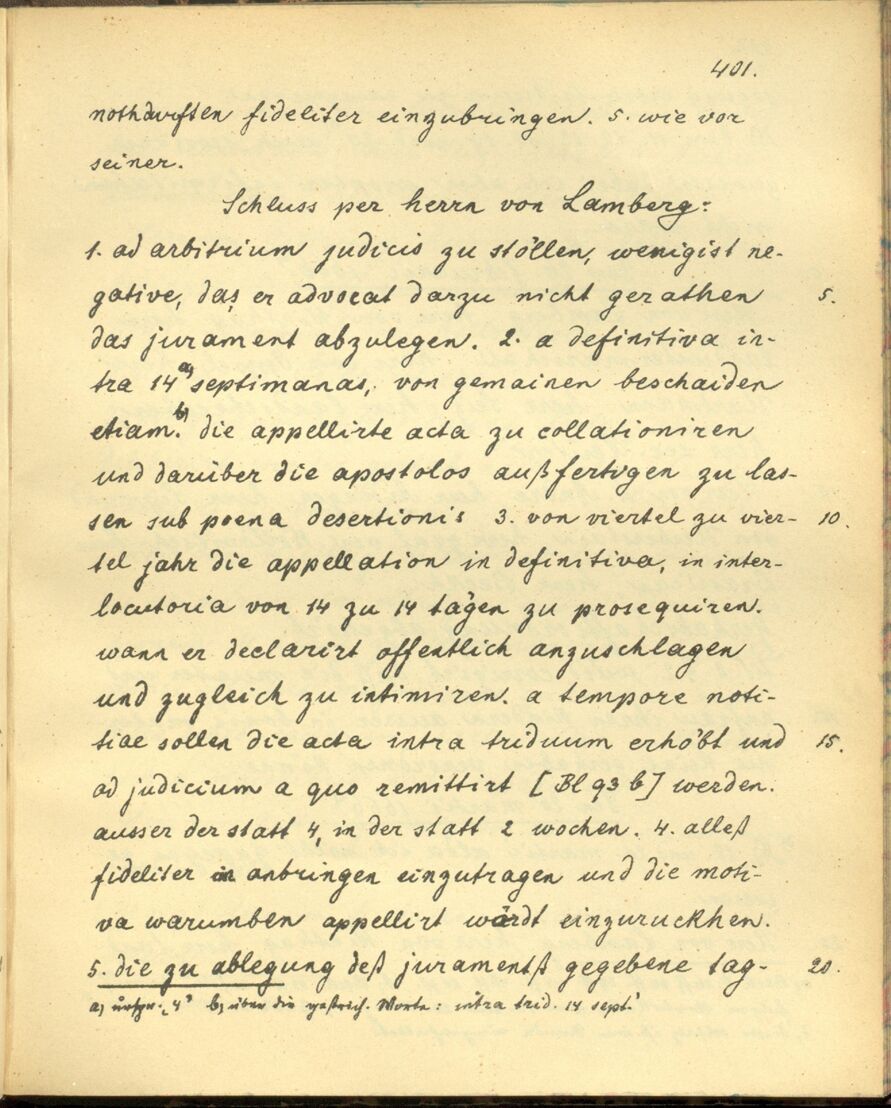 401.
nothdurften fideliter einzubringen. 5. wie vor
seiner.
Schluss per herrn von Lamberg:
1. ad arbitrium judicis zu stöllen, wenigist ne-
gative, das er advocat darzu nicht gerathen 5.
das jurament abzulegen. 2. a definitiva in-
tra 14 a) septimanas, von gemainen beschaiden
etiam. b) die appellirte acta zu collationiren
und darüber die apostolos außfertigen zu las-
sen sub poena desertionis 3. von viertel zu vier- 10.
tel jahr die appellation in definitiva, in inter-
locutoria von 14 zu 14 tägen zu prosequiren.
wann er declarirt offentlich anzuschlagen
und zugleich zu intimiren. a tempore noti-
tiae sollen die acta intra triduum erhöbt und 15.
ad judicium a quo remittirt [Bl 93 b] werden.
ausser der statt 4, in der statt 2 wochen. 4. alleß
fideliter in anbringen einzutragen und die moti-
va warumben appellirt wärdt einzuruckhen.
5. die zu ablegung deß juramentß gegebene tag- 20.
a) urspr. „4“ b) über die gestrich. Worte: intra trid. 14 sept.